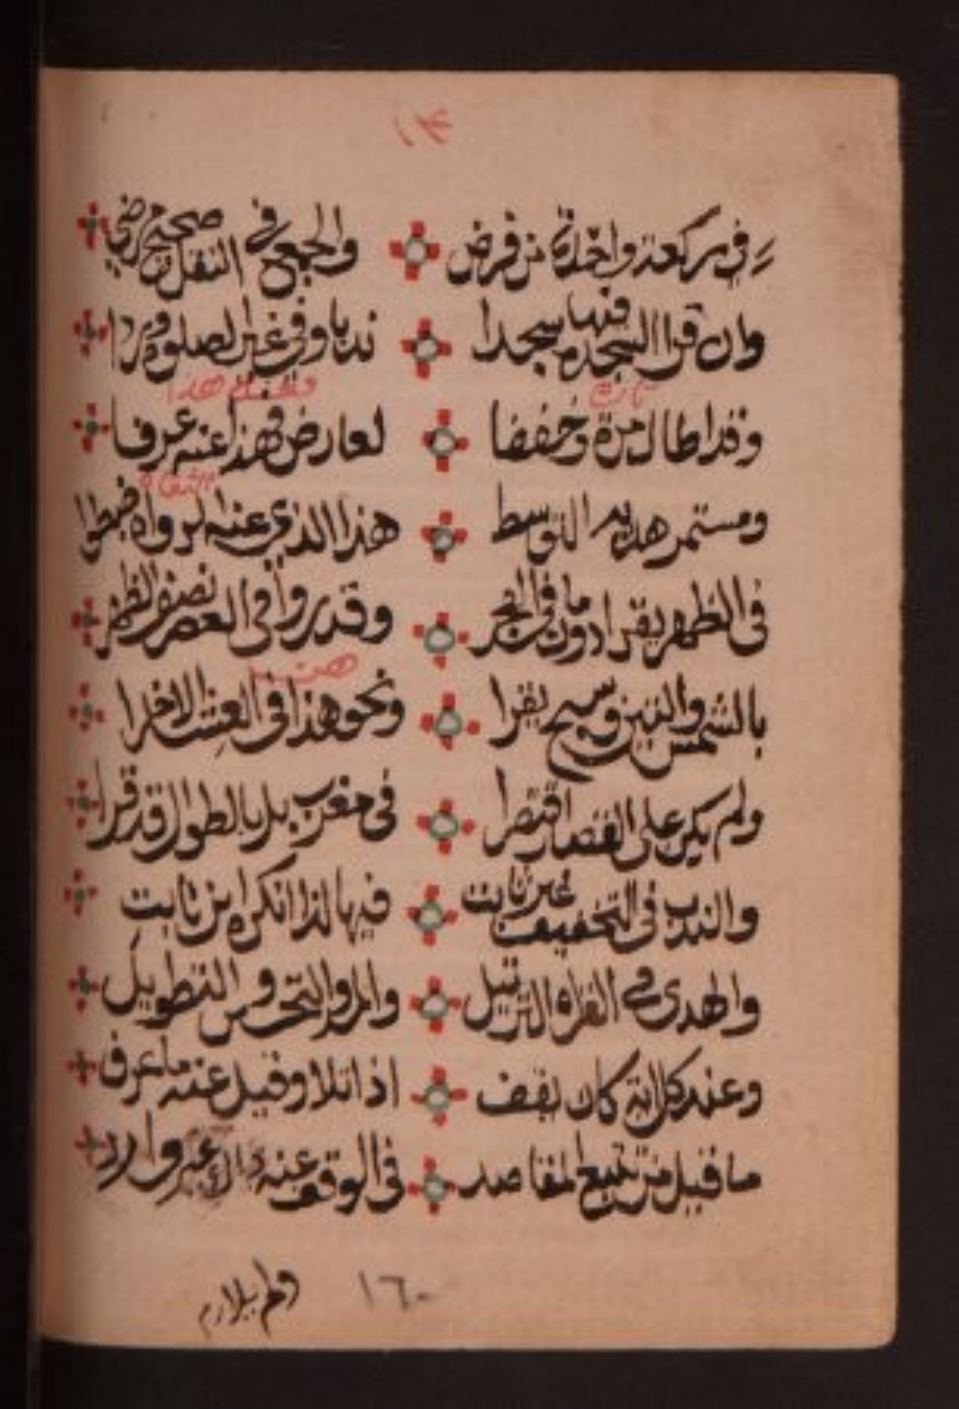 ١٣
في ركعة واحدة من فرض والجمع في النفل صحيح رضي
وان قرا السجدة فيها سجدا ندبا وفي غير الصلوة وردا
وقد اطال مرة وخففا لعارض في هذا عنه عرفا
ومستمر هديه التوسط هذا الذي عنه الرواه ضبطوا
في الظهر يقرا دون ما في الفجر وقد رووا في العصر نصف الظهر
بالشمس والتين وسبح يقرا ونحو هذا في العشا الاخرا
ولم يكن على القصار اقتصرا في مغرب بل بالطوال قد قرا
والندب في التخفيف غير ثابت فيها لذا انكر ابن ثابت
والهدى في القراه الترتيل والمد والتحسين والتطويل
وعند كل اية كان يقف اذا تلا وقيل عنه ما عرف
ما قيل من تتبع المقاصد في الوقف عنه ذاك غير وارد
١٦٠ ولم يلازم